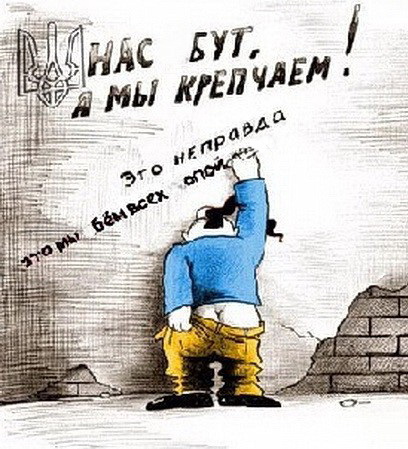 НАС БУТ,
А МЫ КРЕПЧАЕМ!
Это неправда
это мы бём всех опой